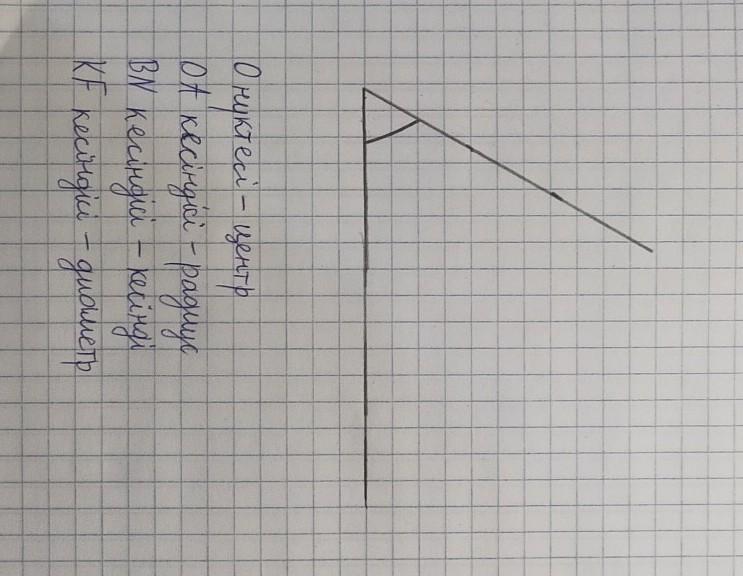 О нүктесі – центр
ОА кесіндісі – радиус
BN кесіндісі – кесінді
KF кесіндісі – диаметр